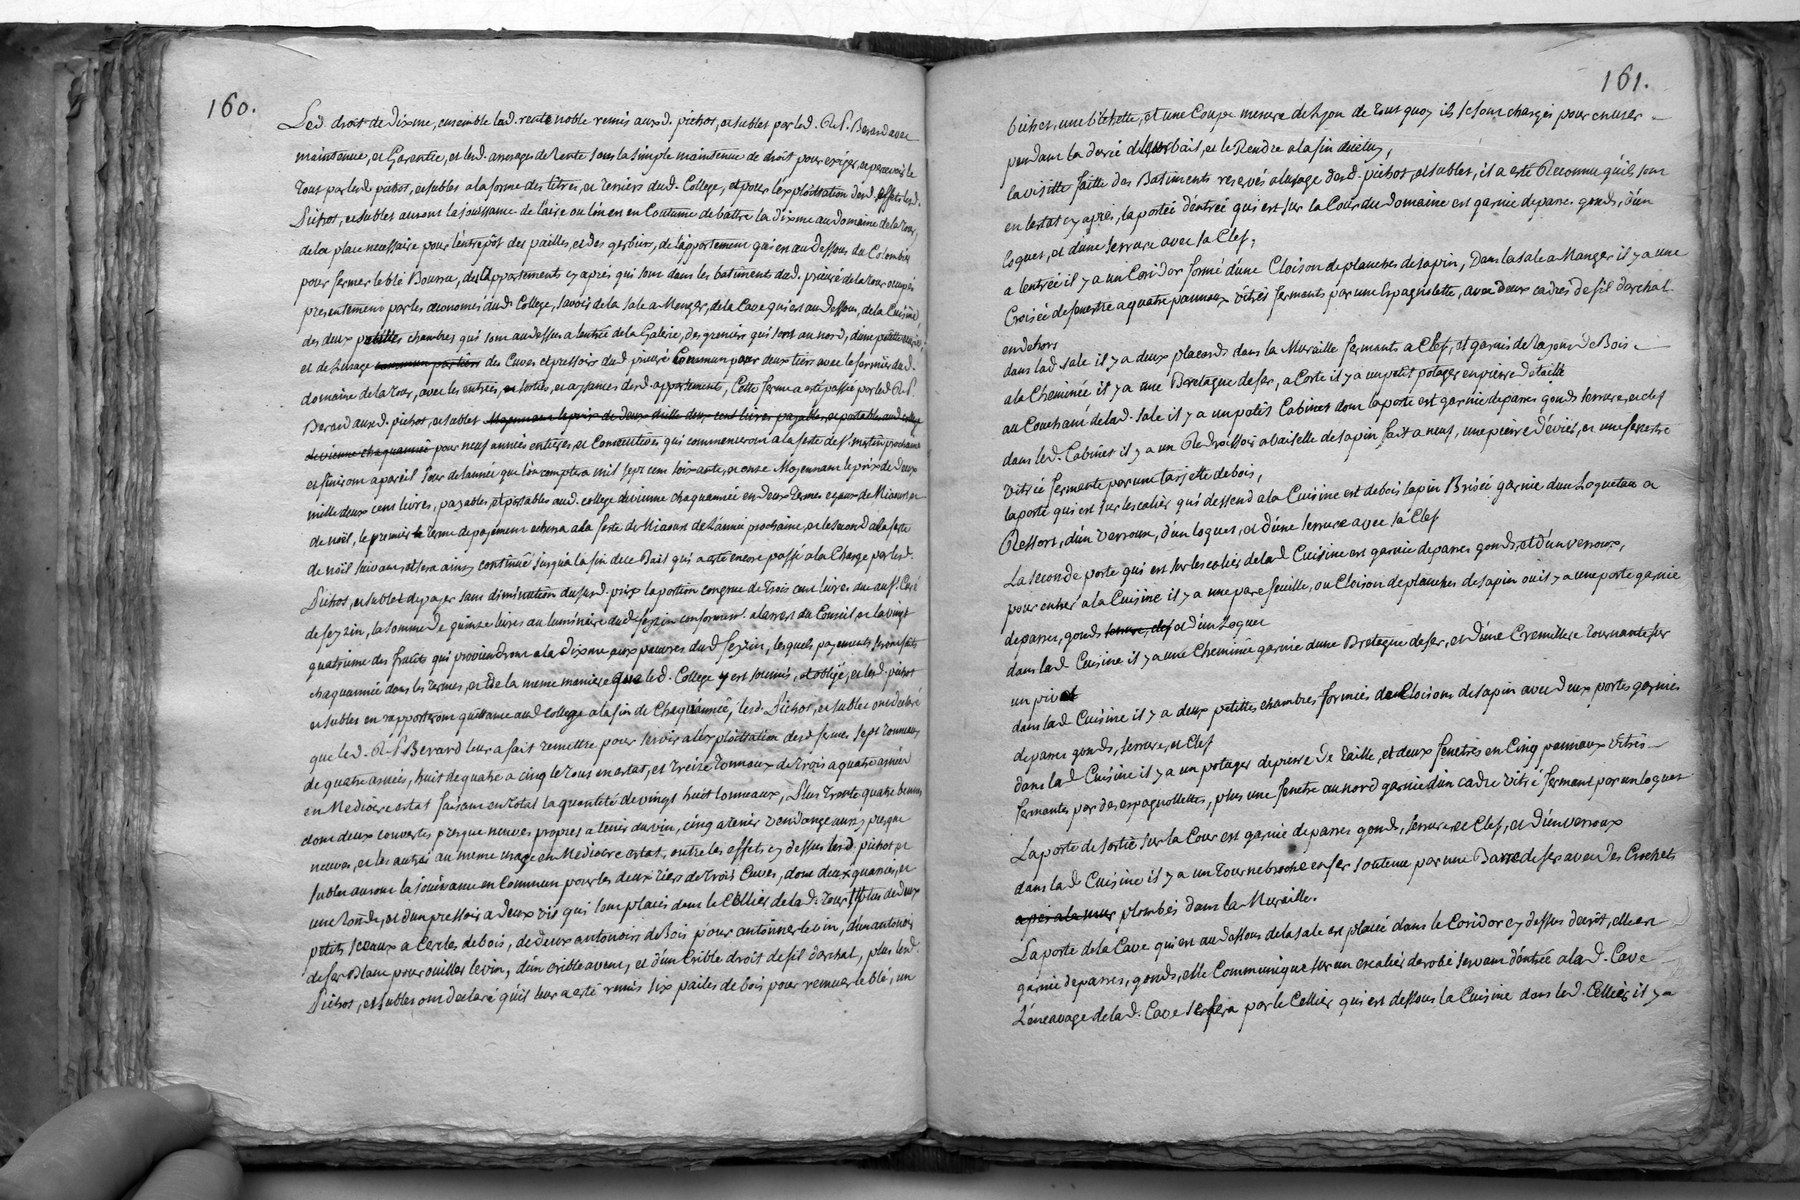 160.
Led droit de dixme, ensemble lad. rente noble remis auxd. pichot, et subles par led. R. P. Berard avec
maintenue, et Garentie, et lesd. arrerages de Rente sous la simple maintenue de droit pour exiger, et percevoir le
tout par lesd pichot, et subles a la forme des titres, et terriers dud. College, et pour l'exploittation desd. effets lesd.
Pichot, et subles auront la jouissance de l'aire ou l'on est en Coutume de battre la dixme au domaine de la tour,
de la place necessaire pour l'entrepôt des pailles, et des gerbiers, de l'appartement qui est au dessous du Colombié
pour fermer le blé Bourru, des appartements cy apres qui sont dans les batiments dud. prieuré de la tour occupés
presentement par les œconomes dud College, savoir de la sale a Manger, de la Cave qui est au dessous, de la Cuisine
des deux petittes chambres qui sont au dessus a l'entrée de la Galerie, des greniers qui sont au nord, d'une petitte
et de l'usage commun par tiers des Cuves et pressoirs dud prieuré Commun pour deux tiers avec le fermier dud.
domaine de la tour, avec les entrées, et sorties, et aysances desd. appartements, Cette ferme a esté passée par led. R. P.
Berard auxd. pichot, et subles Moyennant le prix de deux mille deux cent livres payables, et portables aud. college
de vienne chaquannée pour neuf années entieres, et Consecutives qui commenceront a la feste de St. martin prochaine
et finiront a pareil Jour de l'année que l'on comptera mil sept cent soixante, et onze Moyennant le prix de deux
mille deux cent livres, payables, et portables aud. college de vienne chaquannée en deux termes egaux de Miaoust, et
de noël, le premier terme de payement echerra a la feste de Miaoust de l'année prochaine, et le second a la feste
de noël suivant, et sera ainsy continué jusqu'a la fin de ce Bail qui a esté encore passé a la Charge par lesd.
Pichot, et subles de payer sans diminution dud. prix la portion congrue de trois cent livres due au Sr. Curé
de feyzin, la somme de quinze livres au luminaire dud feyzin conforment. a l'arrest du Conseil, et la vingt
quatrieme des fruits qui proviendront a la dixme aux pauvres dud feyzin, lesquels payements seront faits
chaquannée dans les termes, et de la meme maniere que led. College y est soumis, et obligé, et lesd. pichot
et subles en rapporteront quittance aud College a la fin de Chaquannée, lesd. Pichot, et subles ont declaré
que led. R. P. Berard leur a fait remettre pour servir a l'exploittation desd fermes sept tonneaux
de quatre asnées, huit de quatre a cinq le tout en estat, et treize tonnaux de trois a quatre asnées
en Mediocre estat faisant en total la quantité de vingt huit tonneaux, Plus trente quatre bennes
dont deux couvertes presque neuves propres a tenir du vin, cinq a tenir vendange aussy presque
neuves, et les autres au meme usage en Mediocre estat, outre les effets cy dessus lesd. pichot et
subles auront la jouissance en Commun pour les deux tiers de trois Cuves, dont deux quarrées, et
une ronde, et d'un pressoir a deux vis qui sont placés dans le Cellier de lad. tour, Plus de deux
petits sceaux a Cercles de bois, de deux antonoirs de Bois pour antonner le vin, d'un antonoir
de fer Blanc pour ouiller le vin, d'un crible a vent, et d'un Crible droit de fil d'archal, plus lesd.
Pichot, et subles ont declaré qu'il leur a esté remis six pailes de bois pour remuer le blé, un
161.
bichet, une bichette, et une Coupe mesure de Lyon de tout quoy ils se sont chargés pour en user
pendant la durée de leur bail, et le Rendre a la fin d'icelluy,
la visitte faitte des Batiments reservés a l'usage desd. pichot, et subles, il a esté Reconnu qu'ils sont
en l'estat cy après, la portée d'entrée qui est sur la Cour du domaine est garnie de parres gonds, d'un
loquet, et d'une serrure avec sa Clef,
a l'entrée il y a un Coridor formé d'une Cloison de planches de sapin, Dans la sale a Manger il y a une
Croisée de fenestre a quatre panneaux vitrés fermants par une Espagnolette, avec deux cadres de fil d'archal
en dehors
dans lad sale il y a deux placards dans la Muraille fermants a Clef, et garnis de rayons de Bois
a la Cheminée il y a une Bretagne de fer, a Corté il y a un petit potager en pierre de taille
au Couchant de lad. sale il y a un petit Cabinet dont la porte est garnie de parres gonds serrure, et clef
dans led. Cabinet il y a un Redressoir a vaiselle de sapin fait a neuf, une pierre d'évier, et une fenestre
vitrée fermante par une tarjette de bois,
la porte qui est sur l'escalier qui dessend a la Cuisine est de bois sapin Brisée garnie d'un Loqueteau a
Ressort, d'un verroux, d'un loquet, et d'une serrure avec sa Clef
La seconde porte qui est sur l'escalier de lad Cuisine est garnie de parres gonds, et d'un verroux,
pour entrer a la Cuisine il y a une parefeuille, ou Cloison de planches de sapin ou il y a une porte garnie
de parres, gonds serrure, clef et d'un Loquet
dans lad Cuisine il y a une Cheminée garnie d'une Bretagne de fer, et d'une Cremillere tournante sur
un pivot
dans lad Cuisine il y a deux petittes chambres formées de Cloisons de sapin avec deux portes garnies
de parres gonds, serrure, et Clef
dans lad Cuisine il y a un potager de pierre de taille, et deux fenetres en Cinq panneaux vitrés
fermantes par des espagnollettes, plus une fenetre au nord garnie d'un cadre vitré fermant par un loquet
La porte de sortie sur la Cour est garnie de parres gonds, serrure, et Clef, et d'un verroux
dans lad Cuisine il y a un tournebroche en fer soutenu par une Barre de fer avec des Crochets
plombés dans la Muraille.
La porte de la Cave qui est au dessous de la sale est placée dans le Coridor cy dessus decrit, elle est
garnie de parres, gonds, elle Communique sur un escalier derobé servant d'entrée a lad. Cave
L'encavage de lad. Cave se fera par le Cellier qui est dessous la Cuisine dans led. Cellier il y a